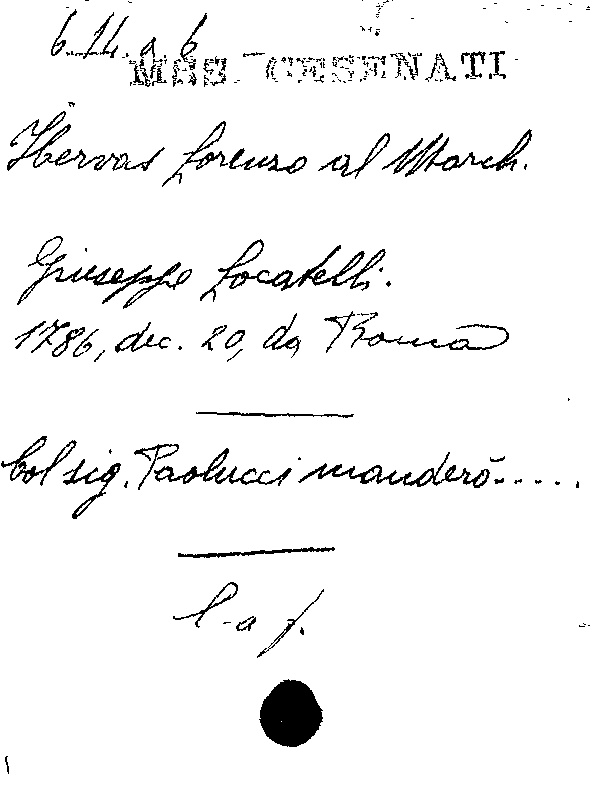 6.14 a 6
MSS. CESENATI
Hervas Lorenzo al March.
Giuseppe Locatelli.
1786, dec. 20, da Roma
Col sig. Paolucci manderò.....
l-a f.